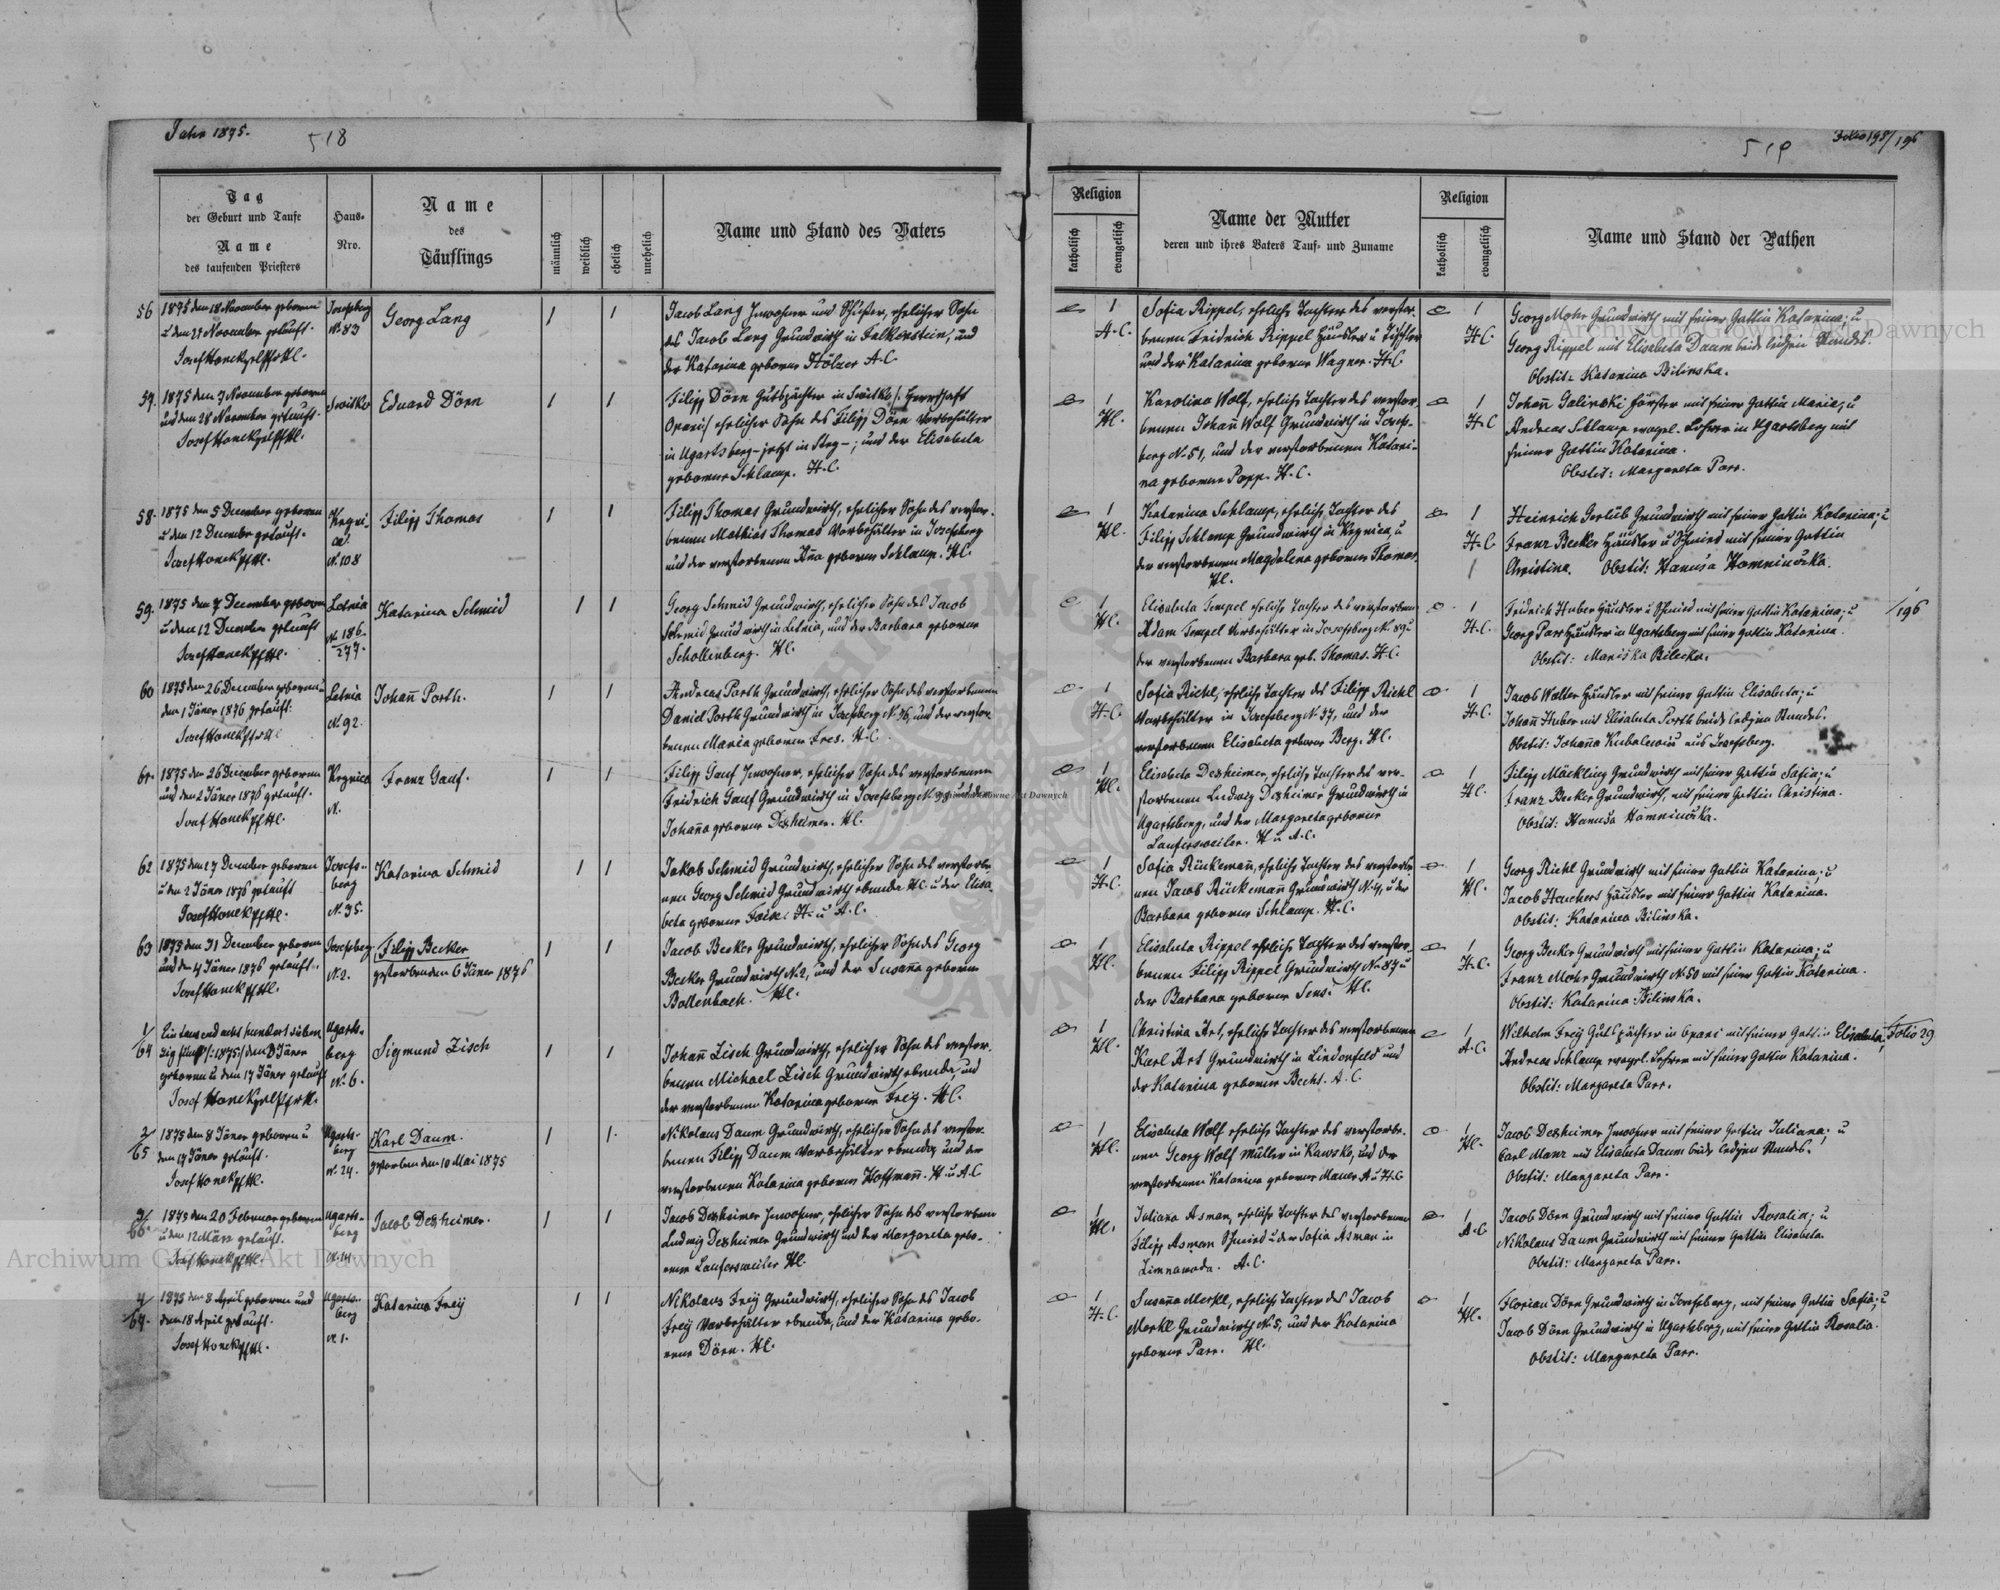 Jahr 1875.
518
519
Folio 195/196
Tag
der Geburt und Taufe
Name
des taufenden Priesters
Haus-
Nro.
Name
des
Täuflings
männlich
weiblich
ehelich
unehelich
Name und Stand des Vaters
Religion
katholisch
evangelisch
Name der Mutter
deren und ihres Vaters Tauf- und Zuname
Religion
katholisch
evangelisch
Name und Stand der Pathen
56
1875 den 18 November geboren
u den 21 November getauft.
Josefsberg
N. 83
Georg Lang
Jacob Lang Inwohner und Schuster, ehelicher Sohn
des Jacob Lang Grundwirth in Falkenstein, und
der Katarina geborene Hölzer A.C.
A.C.
Sofia Rippel, eheliche Tochter des verstor-
benen Fridrich Rippel Häusler u Tischler
und der Katarina geborene Wagner. H.C.
H.C.
Georg Mohr Grundwirth mit seiner Gattin Katarina; u
Georg Rippel mit Elisabeta Daum beide ledigen Standes.
Obstit: Katarina Bilinska.
57.
1875 den 7 November geboren
und den 28 November getauft.
Eduard Dörn
Filipp Dörn Gutspächter in
ehelicher Sohn des Filipp Dörn Vorbehälter
in Ugartsberg - jetzt in Steg -; und der Elisabeta
geborene Schlamp. H.C.
H.C.
Karolina Wolf, eheliche Tochter des verstor-
benen Johann Wolf Grundwirth in Josefs-
berg N. 51, und der verstorbenen Katari-
na geborene Popp. H.C.
H.C.
Johann Galinski Förster mit seiner Gattin Maria; u
Andreas Schlamp evagel. Lehrer in Ugartsberg mit
seiner Gattin Katarina.
Obstit: Margareta Parr.
58.
1875 den 5 December geboren
u den 12 December getauft.
N. 108
Filipp Thomas
Filipp Thomas Grundwirth, ehelicher Sohn des verstor-
benen Mathias Thomas Vorbehälter in Josefsberg
und der verstorbenen Anna geborene Schlamp. H.C.
H.C.
Katarina Schlamp, eheliche Tochter des
Filipp Schlamp Grundwirth in Krynica, u
der verstorbenen Magdalena geborene Thomas.
H.C.
H.C.
Heinrich Gerlüb Grundwirth mit seiner Gattin Katarina; u
Franz Becker Häusler u Schmied mit seiner Gattin
Christina. Obstit: Hanuśa Homniučka.
59.
1875 den 7 December geboren
u den 12 December getauft
Letnia
N. 186.
277.
Katarina Schmid
Georg Schmid Grundwirth, ehelicher Sohn des Jacob
Schmid Grundwirth in Letnia, und der Barbara geborene
Schollenberg. H.C.
H.C.
Elisabeta Tempel eheliche Tochter des verstorbenen
Adam Tempel Vorbehälter in Josefsberg N. 89 u
der verstorbenen Barbara geb. Thomas. H.C.
H.C.
Fridrich Huber Häusler u Schmied mit seiner Gattin Katarina; u
Georg Parr Häusler in Ugartsberg mit seiner Gattin Katarina.
Obstit: Mariška Bilecka.
/196
60
1875 den 26 December geboren u
den 1 Jäner 1876 getauft:
Letnia
N. 92.
Johann Porth.
Andreas Porth Grundwirth, ehelicher Sohn des verstorbenen
Daniel Porth Grundwirth in Josefsberg N. 76, und der verstor-
benen Maria geborene Fres. H.C.
H.C.
Sofia Richl, eheliche Tochter des Filipp Richl
Vorbehälter in Josefsberg N. 37, und der
verstorbenen Elisabeta geborene Berg. H.C.
H.C.
Jacob Walter Häusler mit seiner Gattin Elisabeta; u
Johann Huber mit Elisabeta Porth beide ledigen Standes.
Obstit: Johanna Kubalcow aus Josefsberg.
61.
1875 den 26 December geboren
und den 2 Jäner 1876 getauft.
Krynica
N.
Franz Gauf.
Filipp Gauf Inwohner, ehelicher Sohn des verstorbenen
Fridrich Gauf Grundwirth in Josefsberg N. 38 und der
Johanna geborene Dexheimer. H.C.
H.C.
Elisabeta Dexheimer, eheliche Tochter des ver-
storbenen Ludwig Dexheimer Grundwirth in
Ugartsberg, und der Margareta geborene
Laufersweiler. H u A.C.
H.C.
Filipp Mäckling Grundwirth mit seiner Gattin Sofia; u
Franz Becker Grundwirth, mit seiner Gattin Christina.
Obstit: Hanuśa Homniučka.
62
1875 den 17 December geboren
u den 2 Jäner 1876 getauft
Josefs-
berg
N. 95.
Katarina Schmid
Jakob Schmid Grundwirth, ehelicher Sohn des verstorbe-
nen Georg Schmid Grundwirth ebenda H.C. u der Elisa-
beta geborene H. u A.C.
H.C.
Sofia Rückemann, eheliche Tochter des verstorbe-
nen Jacob Rückemann Grundwirth N. 4, u der
Barbara geborene Schlamp. H.C.
H.C.
Georg Richl Grundwirth mit seiner Gattin Katarina; u
Jacob Häusler mit seiner Gattin Katarina.
Obstit: Katarina Bilinska.
63
1875 den 31 December geboren
und den 4 Jäner 1876 getauft.
Josefsberg
N. 2.
Filipp Becker
gestorben den 6 Jäner 1876
Jacob Becker Grundwirth, ehelicher Sohn des Georg
Becker Grundwirth N. 2, und der Susanna geborene
Bollenbach. H.C.
H.C.
Elisabeta Rippel eheliche Tochter des verstor-
benen Filipp Rippel Grundwirth N. 87 u
der Barbara geborene Sens. H.C.
H.C.
Georg Becker Grundwirth mit seiner Gattin Katarina; u
Franz Mohr Grundwirth N. 50 mit seiner Gattin Katarina.
Obstit: Katarina Bilinska.
1/64
Ein tausend acht hundert sieben
zig fünf /:1875:/ den 8 Jäner
geboren u den 17 Jäner getauft
Ugarts-
berg
N. 6.
Sigmund Zisch
Johann Zisch Grundwirth, ehelicher Sohn des verstor-
benen Michael Zisch Grundwirth ebenda, und
der verstorbenen Katarina geborene Freÿ. H.C.
H.C.
Christina Art, eheliche Tochter des verstorbenen
Karl Art Grundwirth in Lindenfeld und
der Katarina geborene Becht. A.C.
A.C.
Wilhelm Freÿ Gutspächter in Opari mit seiner Gattin Elisabeta,
Andreas Schlamp evagel. Lehrer mit seiner Gattin Katarina.
Obstit: Margareta Parr.
Folio 29
2/65
1875 den 8 Jäner geboren u
den 17 Jäner getauft.
Ugarts-
berg
N. 24.
Karl Daum.
gestorben den 10 Mai 1875
Nikolaus Daum Grundwirth, ehelicher Sohn des verstor-
benen Filipp Daum Vorbehälter ebenda, und der
verstorbenen Katarina geborene Hoffmann. H u A.C.
H.C.
Elisabeta Wolf eheliche Tochter des verstorbe-
nen Georg Wolf Müller in Kawsko, und der
verstorbenen Katarina geborene Mauer A u H.C.
H.C.
Jacob Dexheimer Inwohner mit seiner Gattin Juliana; u
Carl Manz mit Elisabeta Daum beide ledigen Standes.
Obstit: Margareta Parr.
3/66.
1875 den 20 Februar geboren
u den 12 März getauft.
Ugarts-
berg
N. 14
Jacob Dexheimer.
Jacob Dexheimer Inwohner, ehelicher Sohn des verstorbenen
Ludwig Dexheimer Grundwirth und der Margareta gebo-
rene Laufersweiler H.C.
H.C.
Juliana Asman, eheliche Tochter des verstorbenen
Filipp Asman Schmied u der Sofia Asman in
Zimnawoda. A.C.
A.C
Jacob Dörn Grundwirth mit seiner Gattin Rosalia; u
Nikolaus Daum Grundwirth mit seiner Gattin Elisabeta.
Obstit: Margareta Parr.
4/67.
1875 den 8 April geboren und
den 18 April getauft.
Ugarts-
berg
N. 1.
Katarina Freÿ
Nikolaus Freÿ Grundwirth, ehelicher Sohn des Jacob
Freÿ Vorbehälter ebenda, und der Katarina gebo-
rene Dörn. H.C.
H.C.
Susanna Merkl, eheliche Tochter des Jacob
Merkl Grundwirth N. 5, und der Katarina
geborene Parr. H.C.
H.C.
Florian Dörn Grundwirth in Josefsberg, mit seiner Gattin Sofia; u
Jacob Dörn Grundwirth in Ugartsberg, mit seiner Gattin Rosalia.
Obstit: Margareta Parr.
Archiwum Główne Akt Dawnych
Archiwum Główne Akt Dawnych